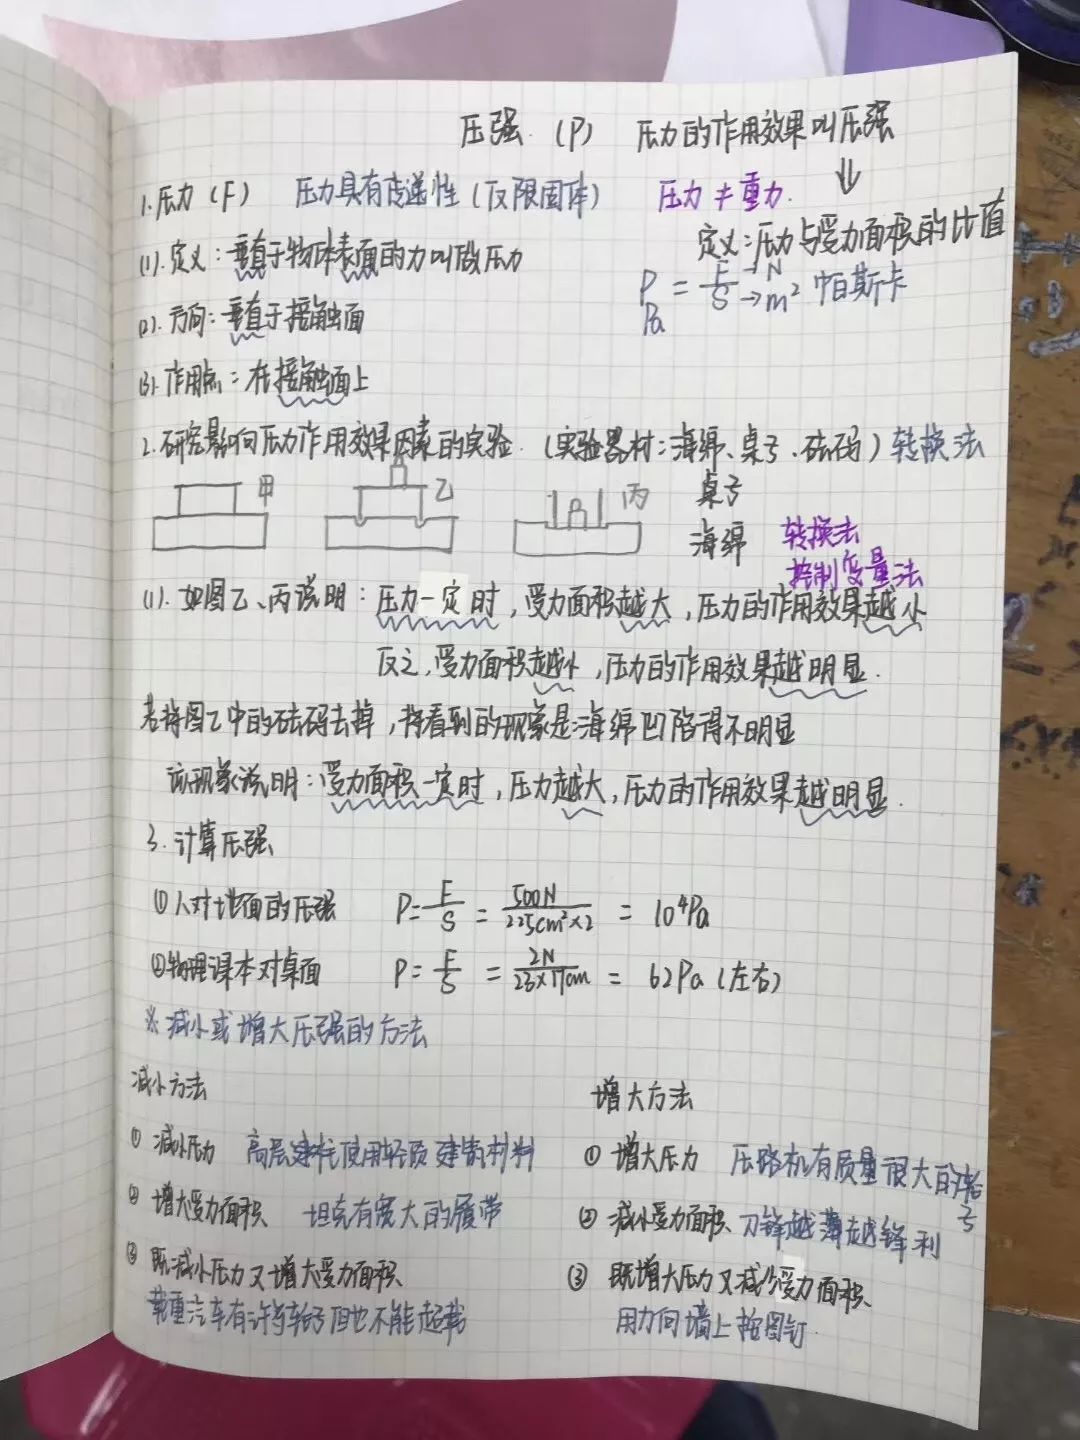 压强 (P) 压力的作用效果叫压强
1.压力(F) 压力具有传递性(仅限固体) 压力≠重力.
定义:压力与受力面积的比值
(1).定义:垂直于物体表面的力叫做压力
P = F/S →N →m² 帕斯卡
Pa
(2).方向:垂直于接触面
(3).作用点:在接触面上
2.研究影响压力作用效果因素的实验.(实验器材:海绵、桌子、砝码)转换法
甲 乙 丙 桌子
海绵 转换法
控制变量法
(1).如图乙、丙说明:压力一定时,受力面积越大,压力的作用效果越小
反之,受力面积越小,压力的作用效果越明显.
若将图乙中的砝码去掉,将看到的现象是:海绵凹陷得不明显
该现象说明:受力面积一定时,压力越大,压力的作用效果越明显.
3.计算压强
①人对地面的压强 P=F/S=500N/225cm²×2=10⁴Pa
②物理课本对桌面 P=F/S=2N/23×17cm=62Pa(左右)
※减小或增大压强的方法
减小方法 增大方法
①减小压力 高层建筑使用轻质建筑材料
①增大压力 压路机有质量很大的轮子
②增大受力面积 坦克有宽大的履带
②减小受力面积 刀锋越薄越锋利
③既减小压力又增大受力面积
载重汽车有许多轮子但也不能超载
③既增大压力又减小受力面积
用力向墙上按图钉.